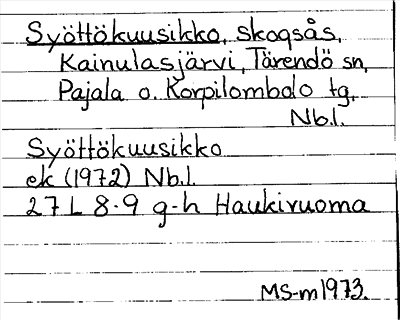 Syöttökuusikko, skogsås,
Kainulasjärvi, Tärendö sn,
Pajala o. Korpilombolo tg,
Nb.l.
Syöttökuusikko
ek (1972) Nb.l.
27 L 8-9 g-h Haukivuoma
MS-m 1973.